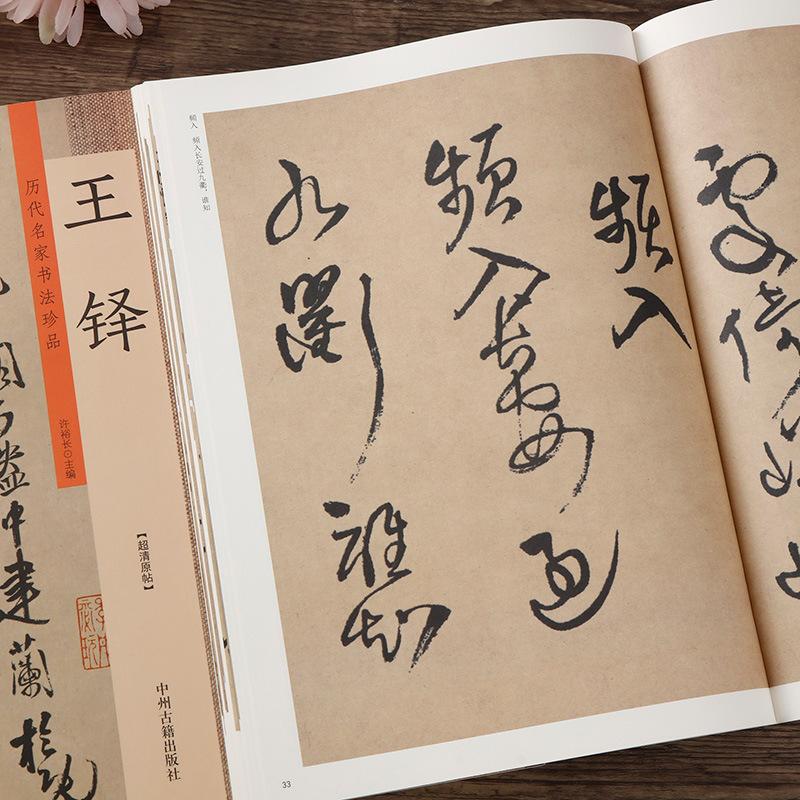 历代名家书法珍品
王铎
许裕长⊙主编
【超清原帖】
中州古籍出版社
中建蘭於
频入 频入长安过九衢，谁知
頻入
頻入長安過
九衢誰知
33